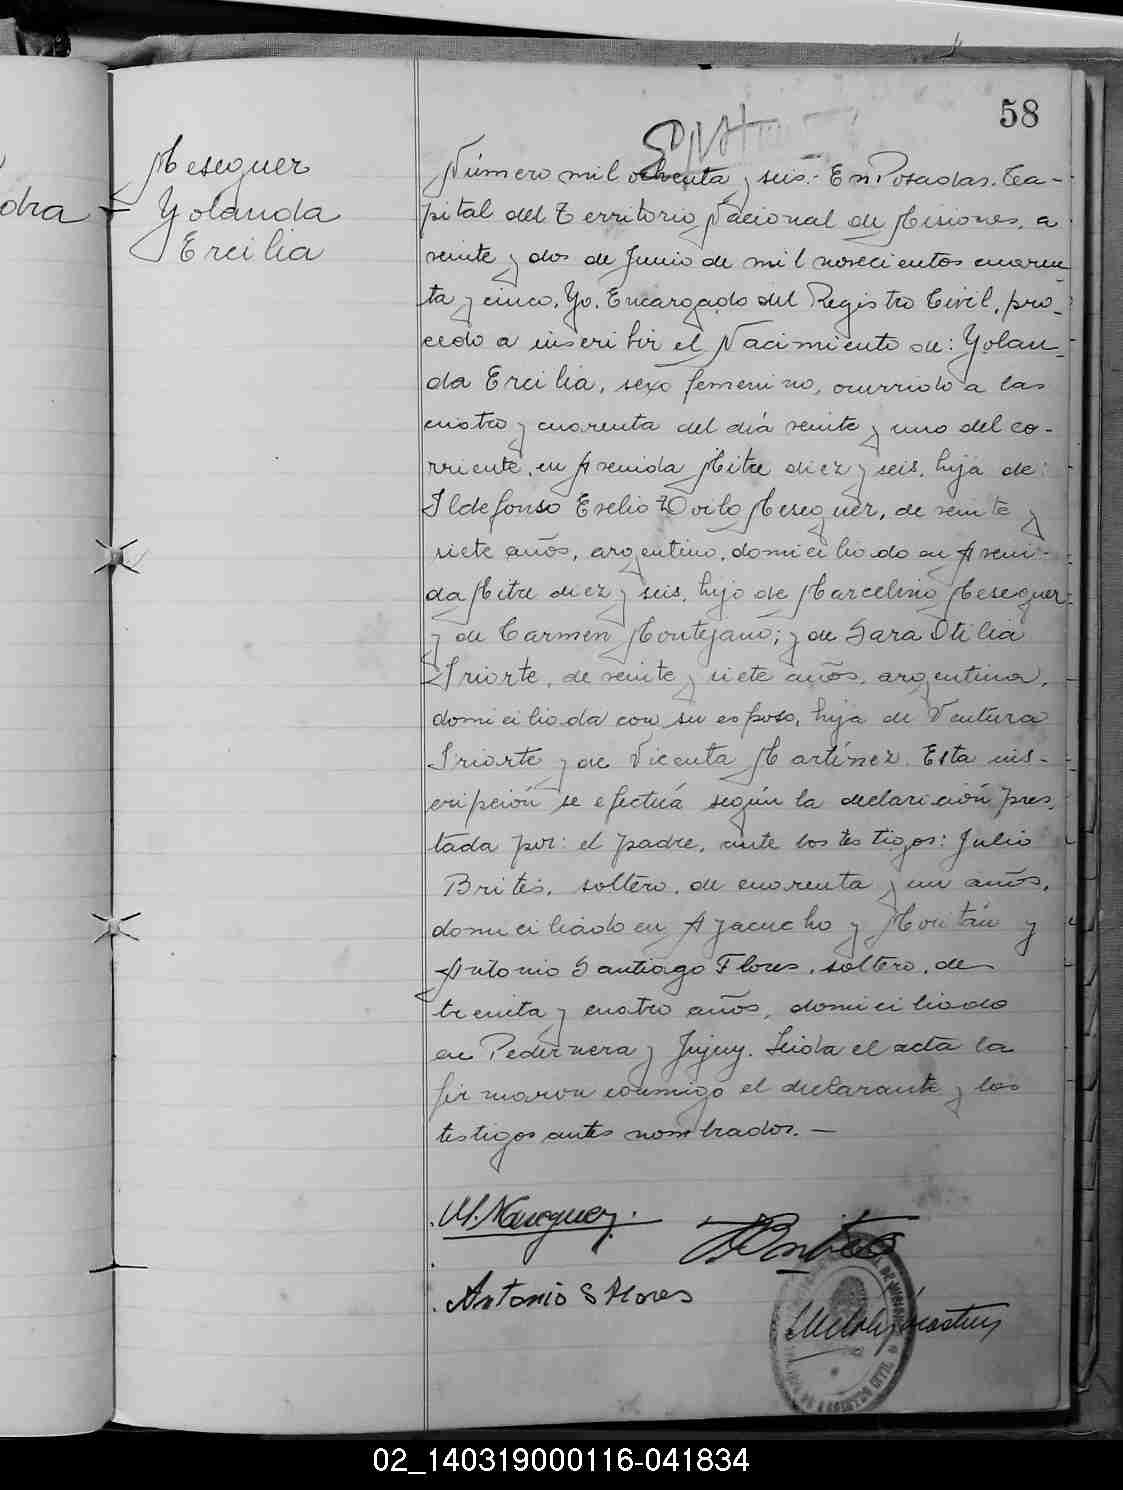 58
Meseguer
Yolanda
Ercilia
dra
Número mil ochenta y seis.- En Posadas. Ca-
pital del Territorio Nacional de Misiones, a
veinte y dos de Junio de mil novecientos cuaren
ta y cinco, Yo, Encargado del Registro Civil, pro-
cedo a inscribir el Nacimiento de: Yolan-
da Ercilia, sexo femenino, ocurrido a las
cuatro y cuarenta del día veinte y uno del co-
rriente, en Avenida Mitre diez y seis, hija de:
Ildefonso Evelio Meseguer, de veinte y
siete años, argentino, domiciliado en Aveni-
da Mitre diez y seis, hijo de Marcelino Meseguer
y de Carmen Montejano; y de Sara Otilia
Iriarte, de veinte y siete años, argentina,
domiciliada con su esposo, hija de Ventura
Iriarte y de Vicenta Martínez. Esta ins-
cripción se efectúa según la declaración pres
tada por: el padre, ante los testigos: Julio
Brites, soltero, de cuarenta y un años,
domiciliado en Ayacucho y y
Antonio Santiago Flores, soltero, de
treinta y cuatro años, domiciliado
en Pedernera y Jujuy. Leída el acta la
firmaron conmigo el declarante y los
testigos antes nombrados.—
Meseguer
Brites
Antonio S Flores
02_140319000116-041834